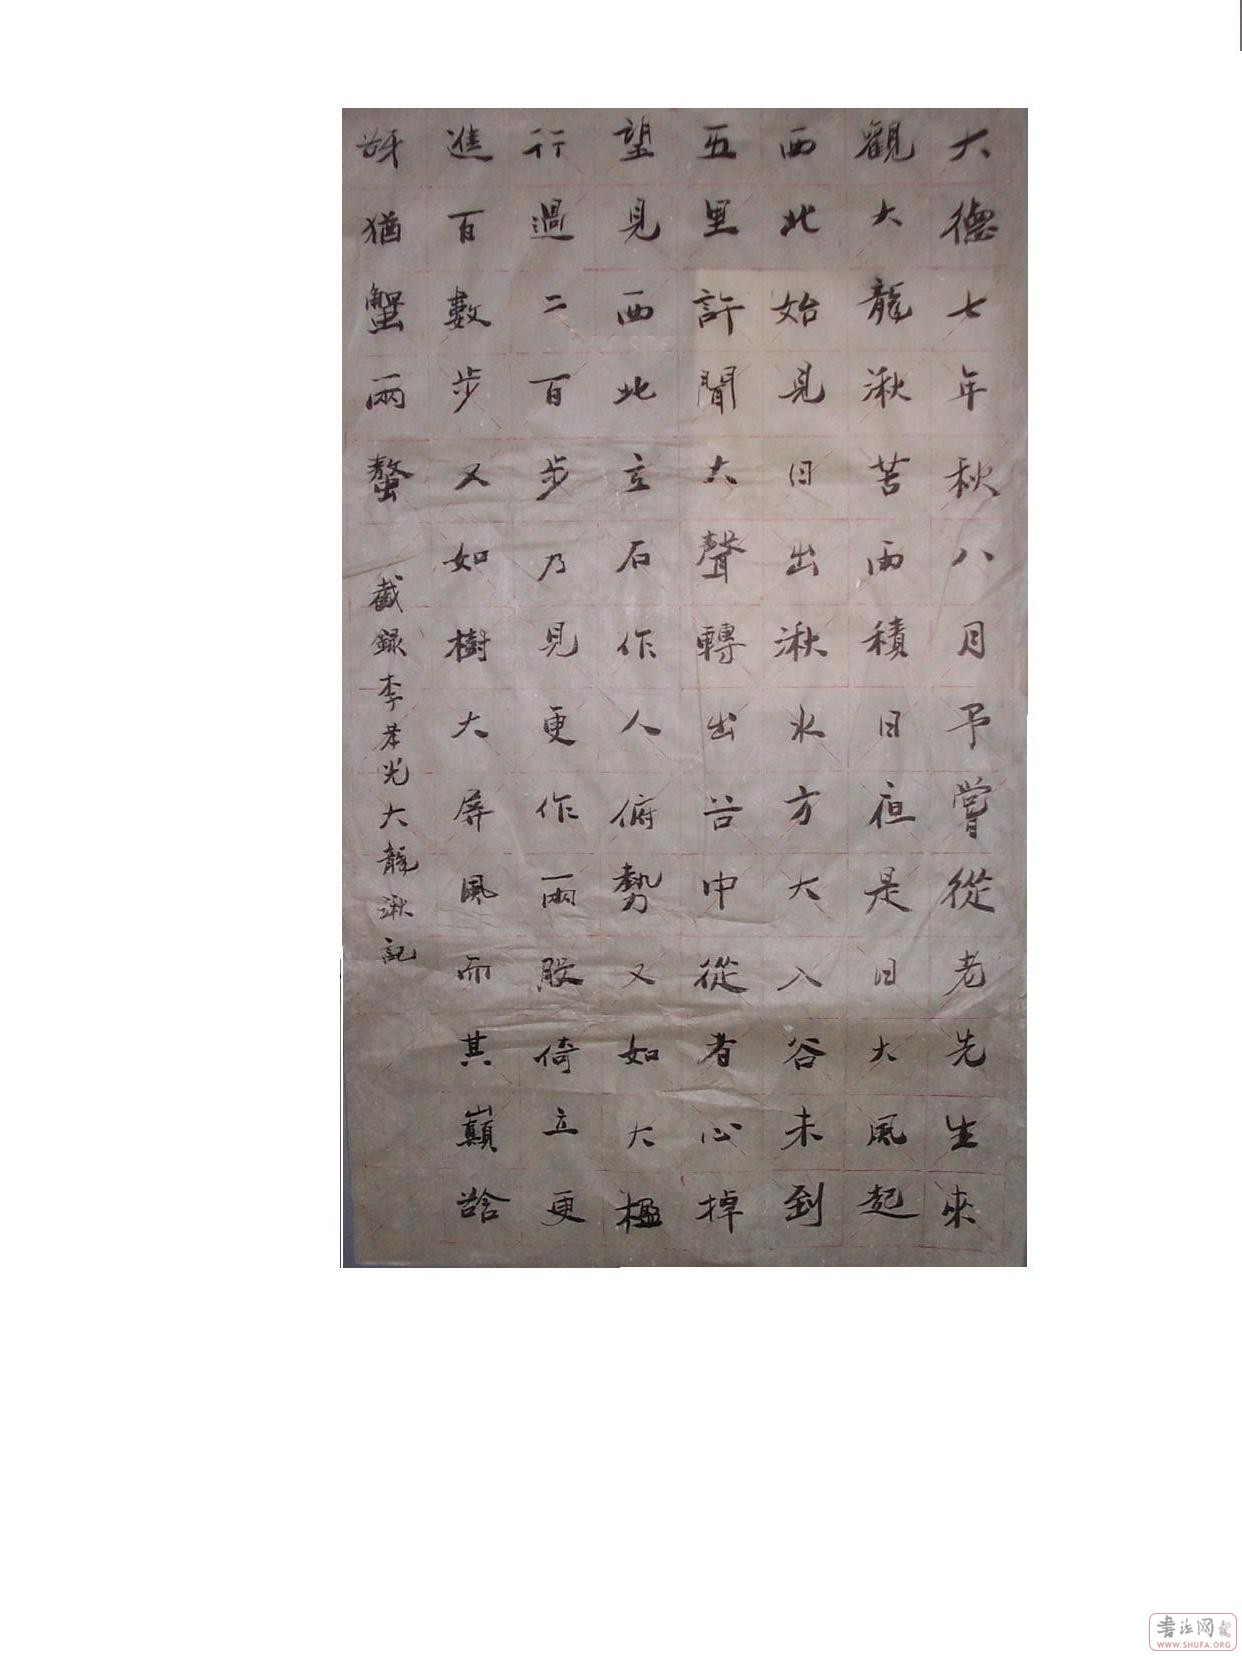 大德七年秋八月予嘗從老先生來
觀大龍湫苦雨積日夜是日大風起
西北始見日出湫水方大入谷未到
五里許聞大聲轉出谷中從者心掉
望見西北立石作人俯勢又如大楹
行過二百步乃見更作兩股倚立更
進百數步又如樹大屏風而其巔谽
谺猶蟹兩螯
截録李孝光大龍湫記
書法网
WWW.SHUFA.ORG